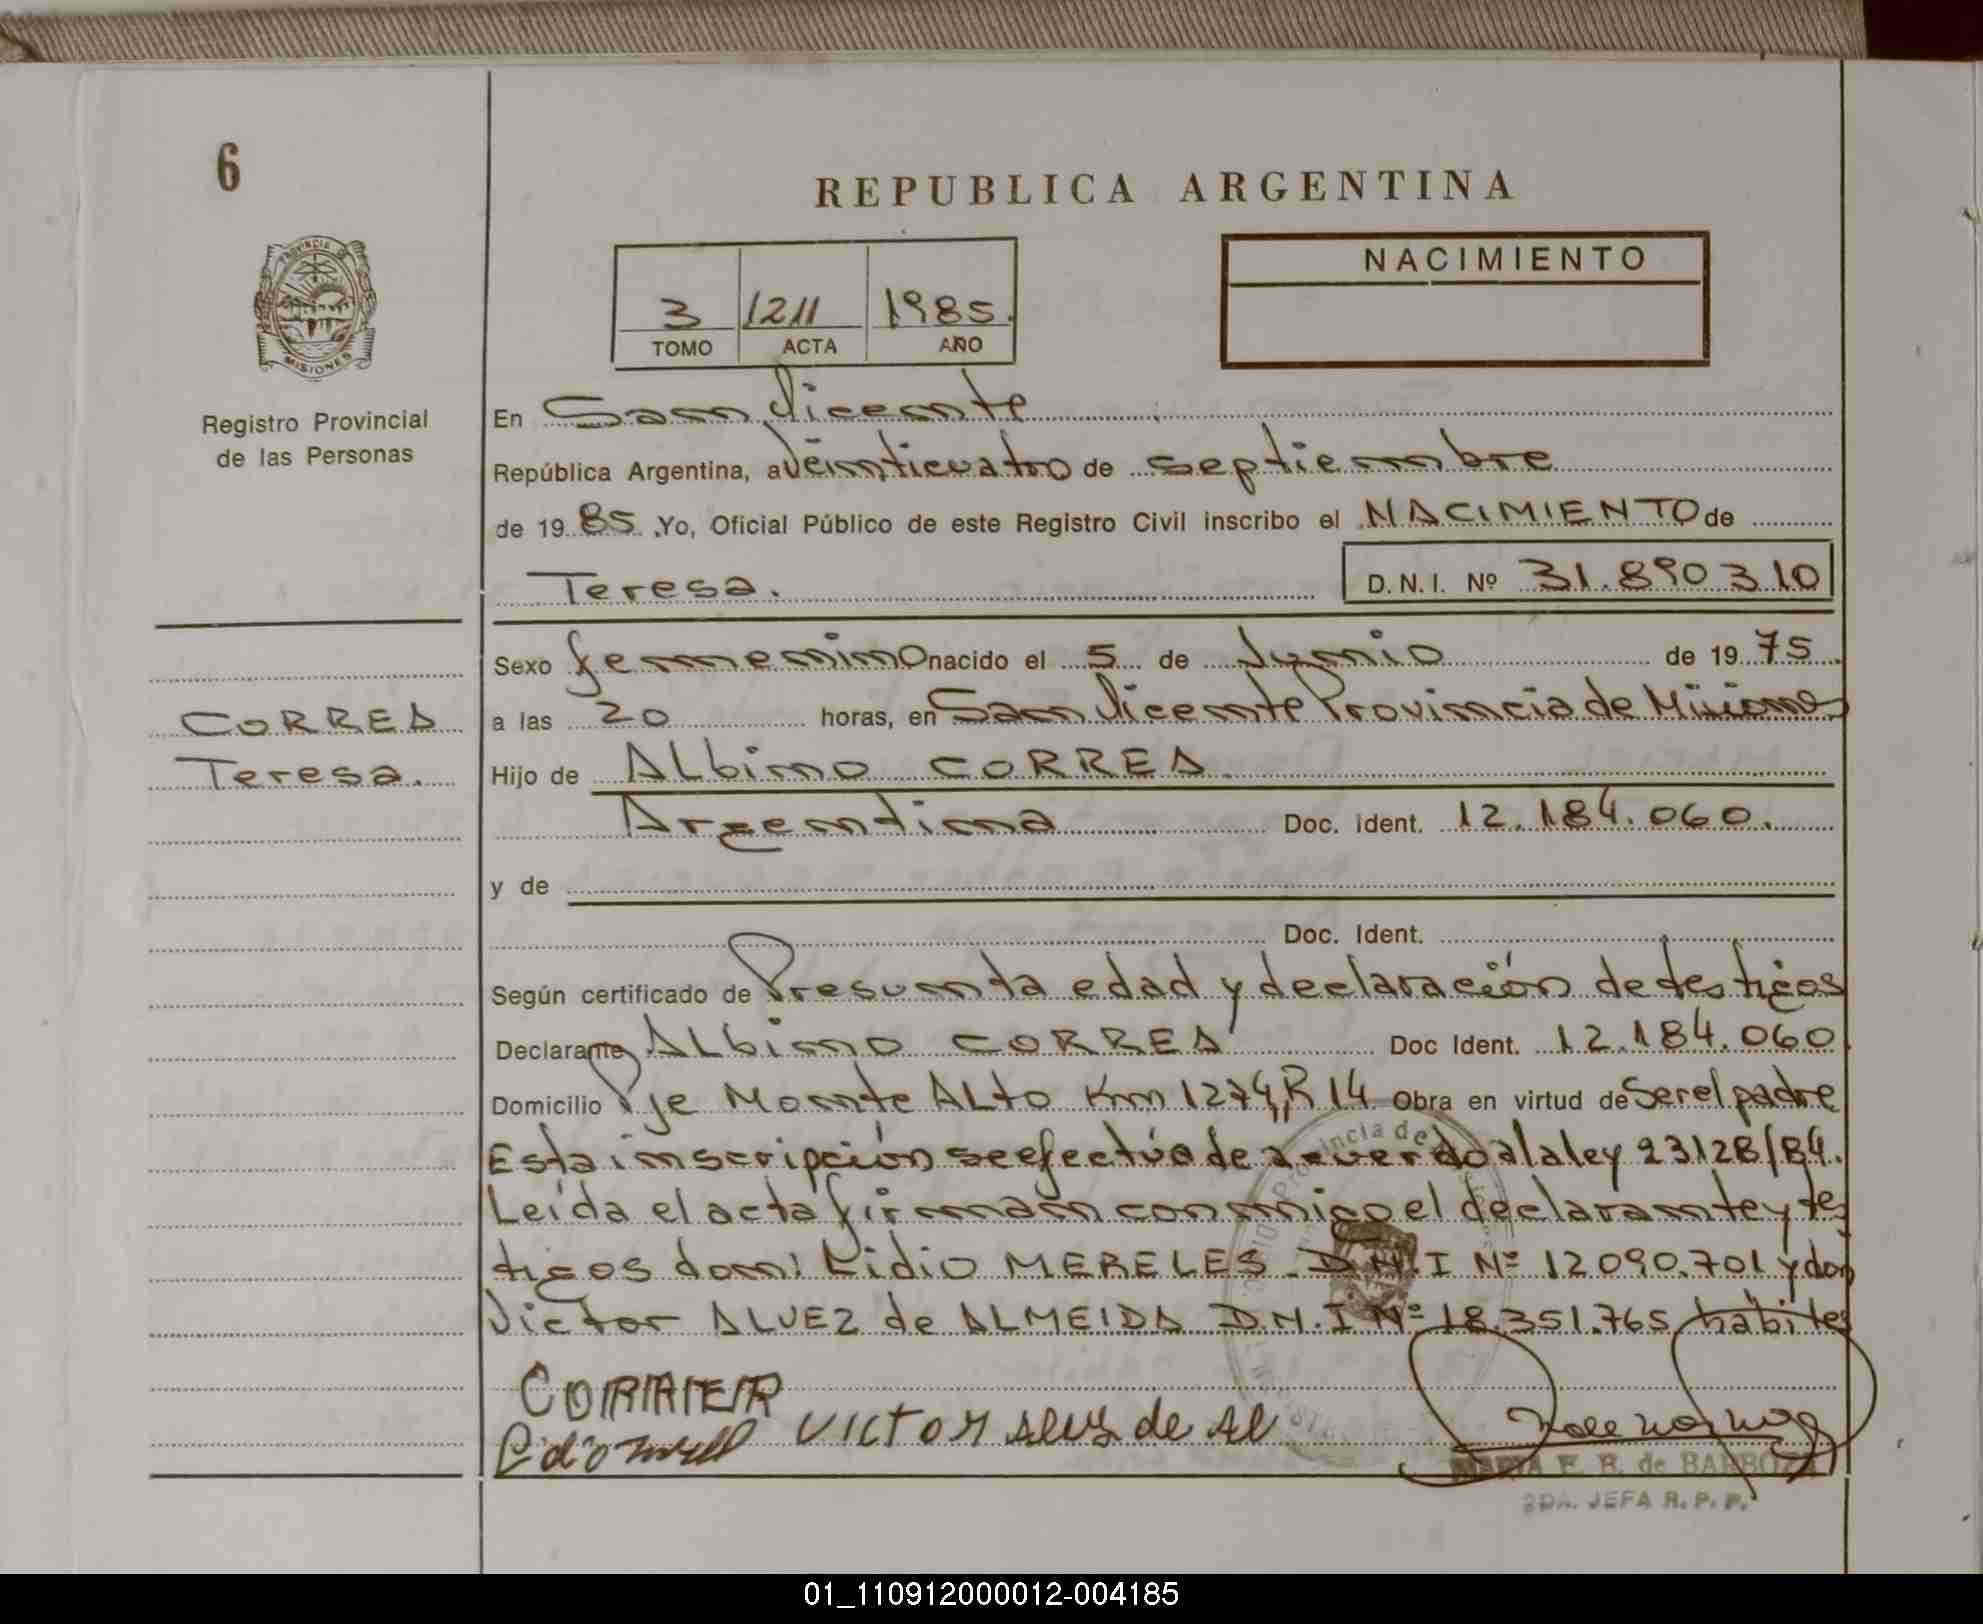 6
REPUBLICA ARGENTINA
PROVINCIA D
MISIONES
NACIMIENTO
3 1211 1985.
TOMO ACTA AÑO
Registro Provincial
de las Personas
En San Vicente
República Argentina, a Veinticuatro de septiembre
de 19 85 .Yo, Oficial Público de este Registro Civil inscribo el NACIMIENTO de
Teresa. D.N.I. Nº 31.890.310
Sexo femenino nacido el 5 de Junio de 19 75
CORREA
Teresa.
a las 20 horas, en San Vicente Provincia de Misiones
Hijo de Albino CORREA
Argentina Doc. ident. 12.184.060.
y de
Doc. Ident.
Según certificado de Presunta edad y declaración de testigos
Declarante Albino CORREA Doc Ident. 12.184.060
Domicilio Pje Monte Alto Km 1274, R 14 Obra en virtud de Ser el padre
Esta inscripción se efectúa de acuerdo a la ley 23128/84.
Leída el acta firman conmigo el declarante y tes
tigos don: Lidio MERELES. D.N.I Nº 12090.701 y don
Victor ALVEZ de ALMEIDA D.N.I Nº 18.351.765 habiles
Provincia de
CORRER
Lidio
VICTOR ALVZ de Al
MARIA E. R. de BARBOZA
2DA. JEFA R.P.P.
01_110912000012-004185